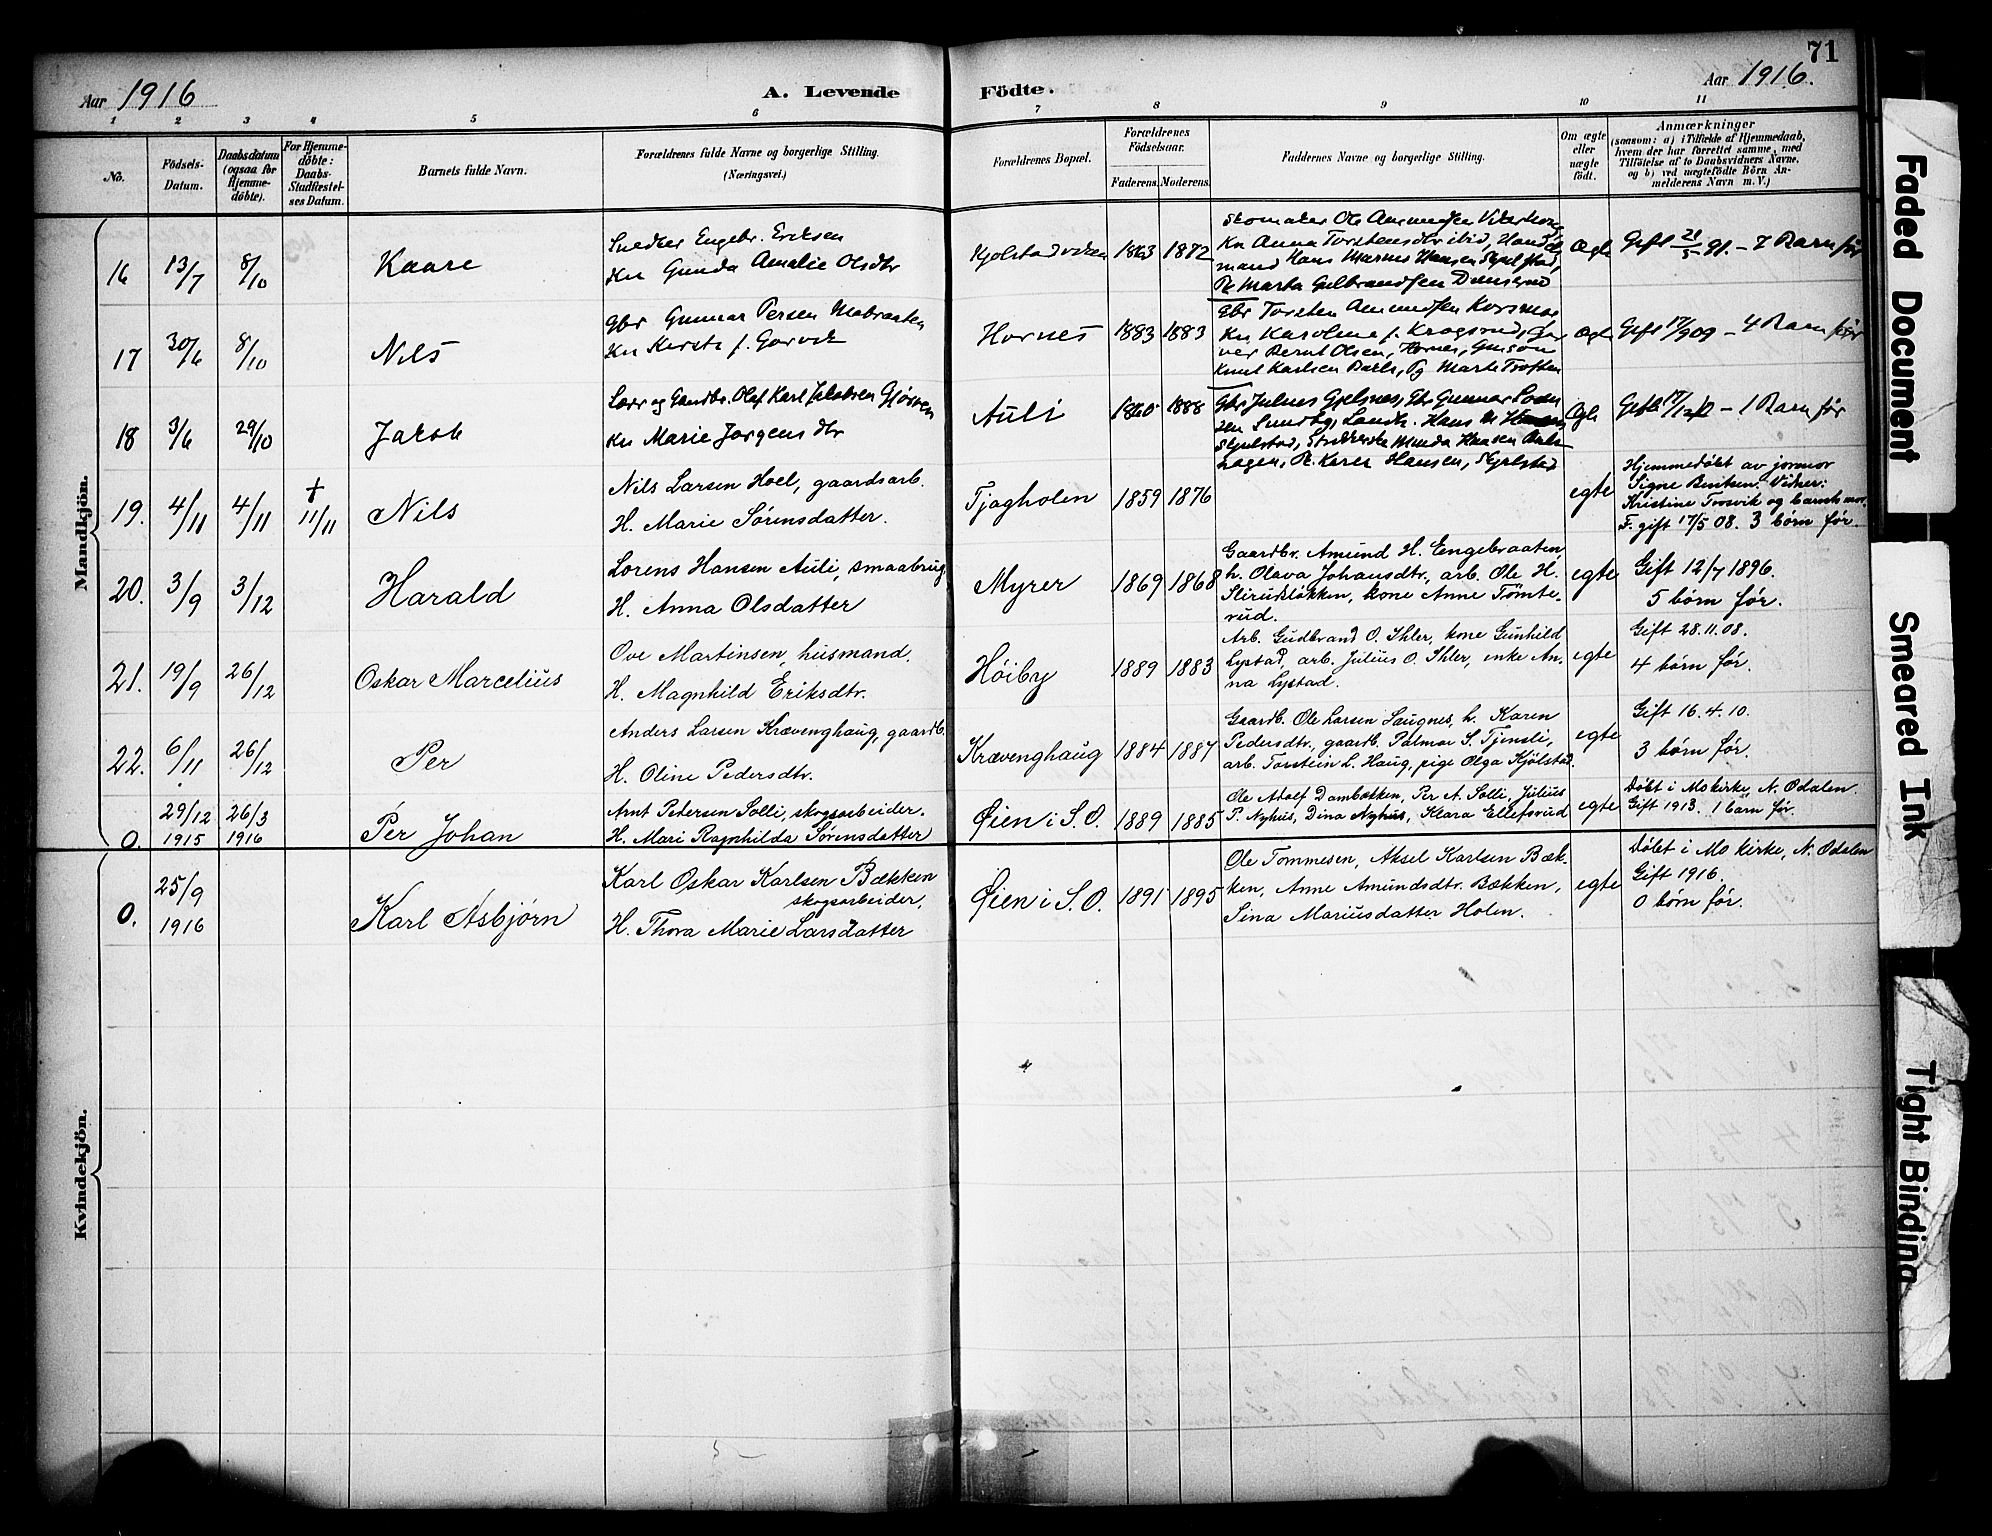 71
Aar 1916
A. Levende Födte.
Aar 1916.
1 2 3 4 5 6 7 8 9 10 11
No.
Födsels-Datum.
Daabsdatum (ogsaa for Hjemme-döbte).
For Hjemme-döbte: Daabs-Stadfæstel-ses Datum.
Barnets fulde Navn.
Forældrenes fulde Navne og borgerlige Stilling.
(Næringsvei.)
Forældrenes Bopæl.
Forældrenes Födselsaar.
Faderens. Moderens.
Faddernes Navne og borgerlige Stilling.
Om ægte eller uægte födt.
Anmærkninger
(saasom: a) i Tilfælde af Hjemmedaab,
hvem der har forrettet samme, med
Tilföielse af to Daabsvidners Navne,
og b) ved uægtefödte Börn An-
melderens Navn m. V.)
Mandkjön.
16 13/7 8/10 Kaare
Snedker Engebr. Eriksen
Kn Gunda Amalie Olsdtr
Kjolstadviken 1863 1872
Skomaker Ole Amundsen
Kn Anna Torstensdtr ibid, Hand
mand Hans Marius Hansen Skjelstad,
Pe Marta Gulbrandsen
Ægte
Gift 21/5 91. – 7 Barn før
17 30/6 8/10 Nils
Gbr Gunnar Persen Mobraaten
Kn Kersti f. Gorvik
Hornes 1883 1883
Gbr Torsten Amundsen Korsmo
Kn Karoline f. Krogsrud,
ver Bernt Olsen, Hornes, Gmsøn
Knut Karlsen, Pg Marte Troften
Ægte
Gift 17/9 09 – 4 Barn før
18 3/6 29/10 Jakob
Lær og Gaardbr. Olaf Karl Jakobsen Gjörven
Kn Marie Jørgensdtr
Auli 1860 1888
Gbr Julius Gjelsnes, Gbr Gunnar
Hans
Skjelstad, Munda Hansen
hagen, Pe. Karen Hansen, Skjelstad
Ægte
Gift 17/12 – 1 Barn før
19. 4/11 4/11 † 11/11 Nils
Nils Larsen Hoel, gaardsarb.
H. Marie Sørensdatter.
Tjagholen 1859 1876
egte
Hjemmedøbt av jormor
Signe Bentsen. Vidner:
Kristine Trosvik og barnets mor.
F. gift 17/5 08. 3 børn før
20. 3/9 3/12 Harald
Lorens Hansen Auli, smaabrug
H. Anna Olsdatter
Myrer 1869 1868
Gaardbr. Amund H. Engebraaten,
h. Olava Johansdtr., arb. Ole H.
Slirudsløkken, kone Anne Tömte-
rud.
egte
Gift 12/7 1896.
5 børn før.
21. 19/9 26/12 Oskar Marcelius
Ove Martinsen, husmand.
H. Magnhild Eriksdtr.
Høiby 1889 1883
Arb. Gudbrand O. Ihler, kone Gunhild
Lystad, arb. Julius O. Ihler, enke An-
na Lystad.
egte
Gift 28.11.08.
4 børn før.
22. 6/11 26/12 Per
Anders Larsen Krævenghaug, gaardb.
H. Oline Pedersdtr.
Krævenghaug 1884 1887
Gaardb. Ole Larsen Saugnes, h. Karen
Pedersdtr., gaardb. Palmar S. Tjensli,
arb. Torstein L. Haug, pige Olga Kjölstad.
egte
Gift 16.4.10.
3 børn før.
0. 29/12 1915 26/3 1916 Per Johan
Arnt Petersen Solli, skogsarbeider.
H. Mari Ragnhilda Sørensdatter
Øien i S.O. 1889 1885
Ole Adolf Dambakken, Per A. Solli, Julius
P. Nyhus, Dina Nyhus, Klara Ellefsrud
egte
Døbt i Mo kirke, N. Odalen
Gift 1913. 1 barn før.
Kvindekjön.
0. 25/9 1916 Karl Asbjørn
Karl Oskar Karlsen Bækken
skogsarbeider,
H. Thora Marie Larsdatter
Øien i S.O. 1891 1895
Ole Tommesen, Aksel Karlsen Bæk-
ken, Anne Amundsdtr. Bækken,
Sina Mariusdatter Holen.
egte
Døbt i Mo kirke, N. Odalen
Gift 1916.
0 børn før.
Faded Document
Smeared Ink
Tight Binding